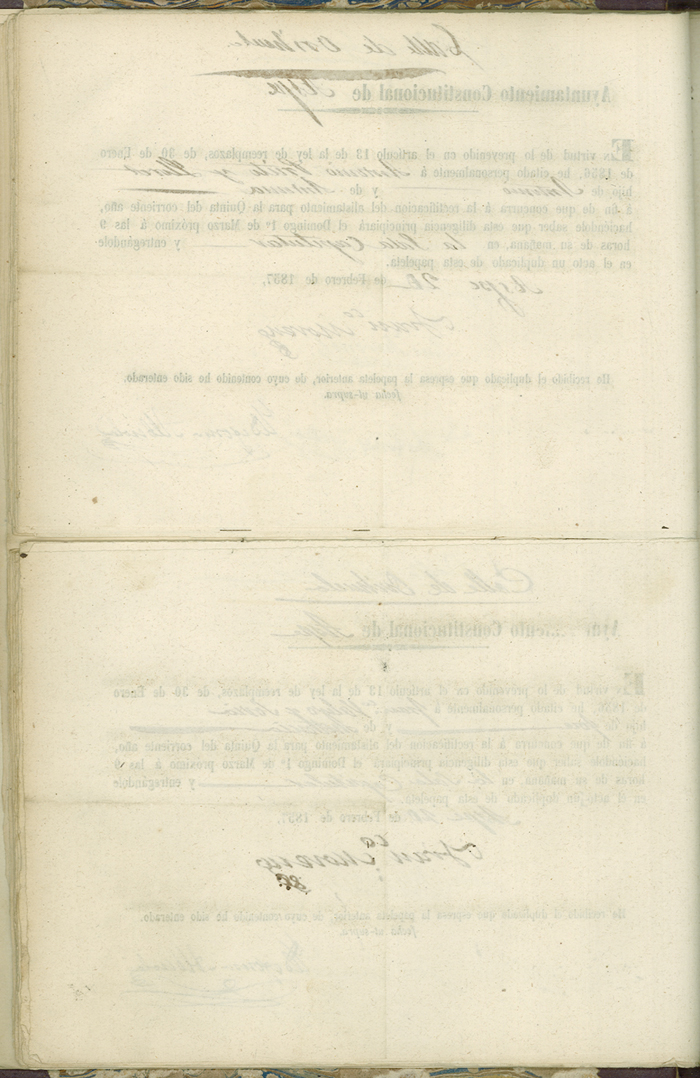 Calle de
Ayuntamiento Constitucional de Aspe
EN virtud de lo prevenido en el artículo 13 de la ley de reemplazos, de 30 de Enero
de 1856, he citado personalmente á Antonio y
hijo de Antonio y de Antonia
á fin de que concurra á la rectificacion del alistamiento para la Quinta del corriente año,
haciéndole saber que esta diligencia principiará el Domingo 1º de Marzo próximo á las 9
horas de su mañana, en la Sala Capitular y entregándole
en el acto un duplicado de esta papeleta.
Aspe de Febrero de 1857.
Franco Moreno
He recibido el duplicado que espresa la papeleta anterior, de cuyo contenido he sido enterado.
fecha ut-supra.
Calle de
Ayuntamiento Constitucional de Aspe
EN virtud de lo prevenido en el artículo 13 de la ley de reemplazos, de 30 de Enero
de 1856, he citado personalmente á
hijo de y de
á fin de que concurra á la rectificacion del alistamiento para la Quinta del corriente año,
haciéndole saber que esta diligencia principiará el Domingo 1º de Marzo próximo á las 9
horas de su mañana, en la Sala Capitular y entregándole
en el acto un duplicado de esta papeleta.
Aspe de Febrero de 1857.
Franco Moreno
He recibido el duplicado que espresa la papeleta anterior, de cuyo contenido he sido enterado.
fecha ut-supra.